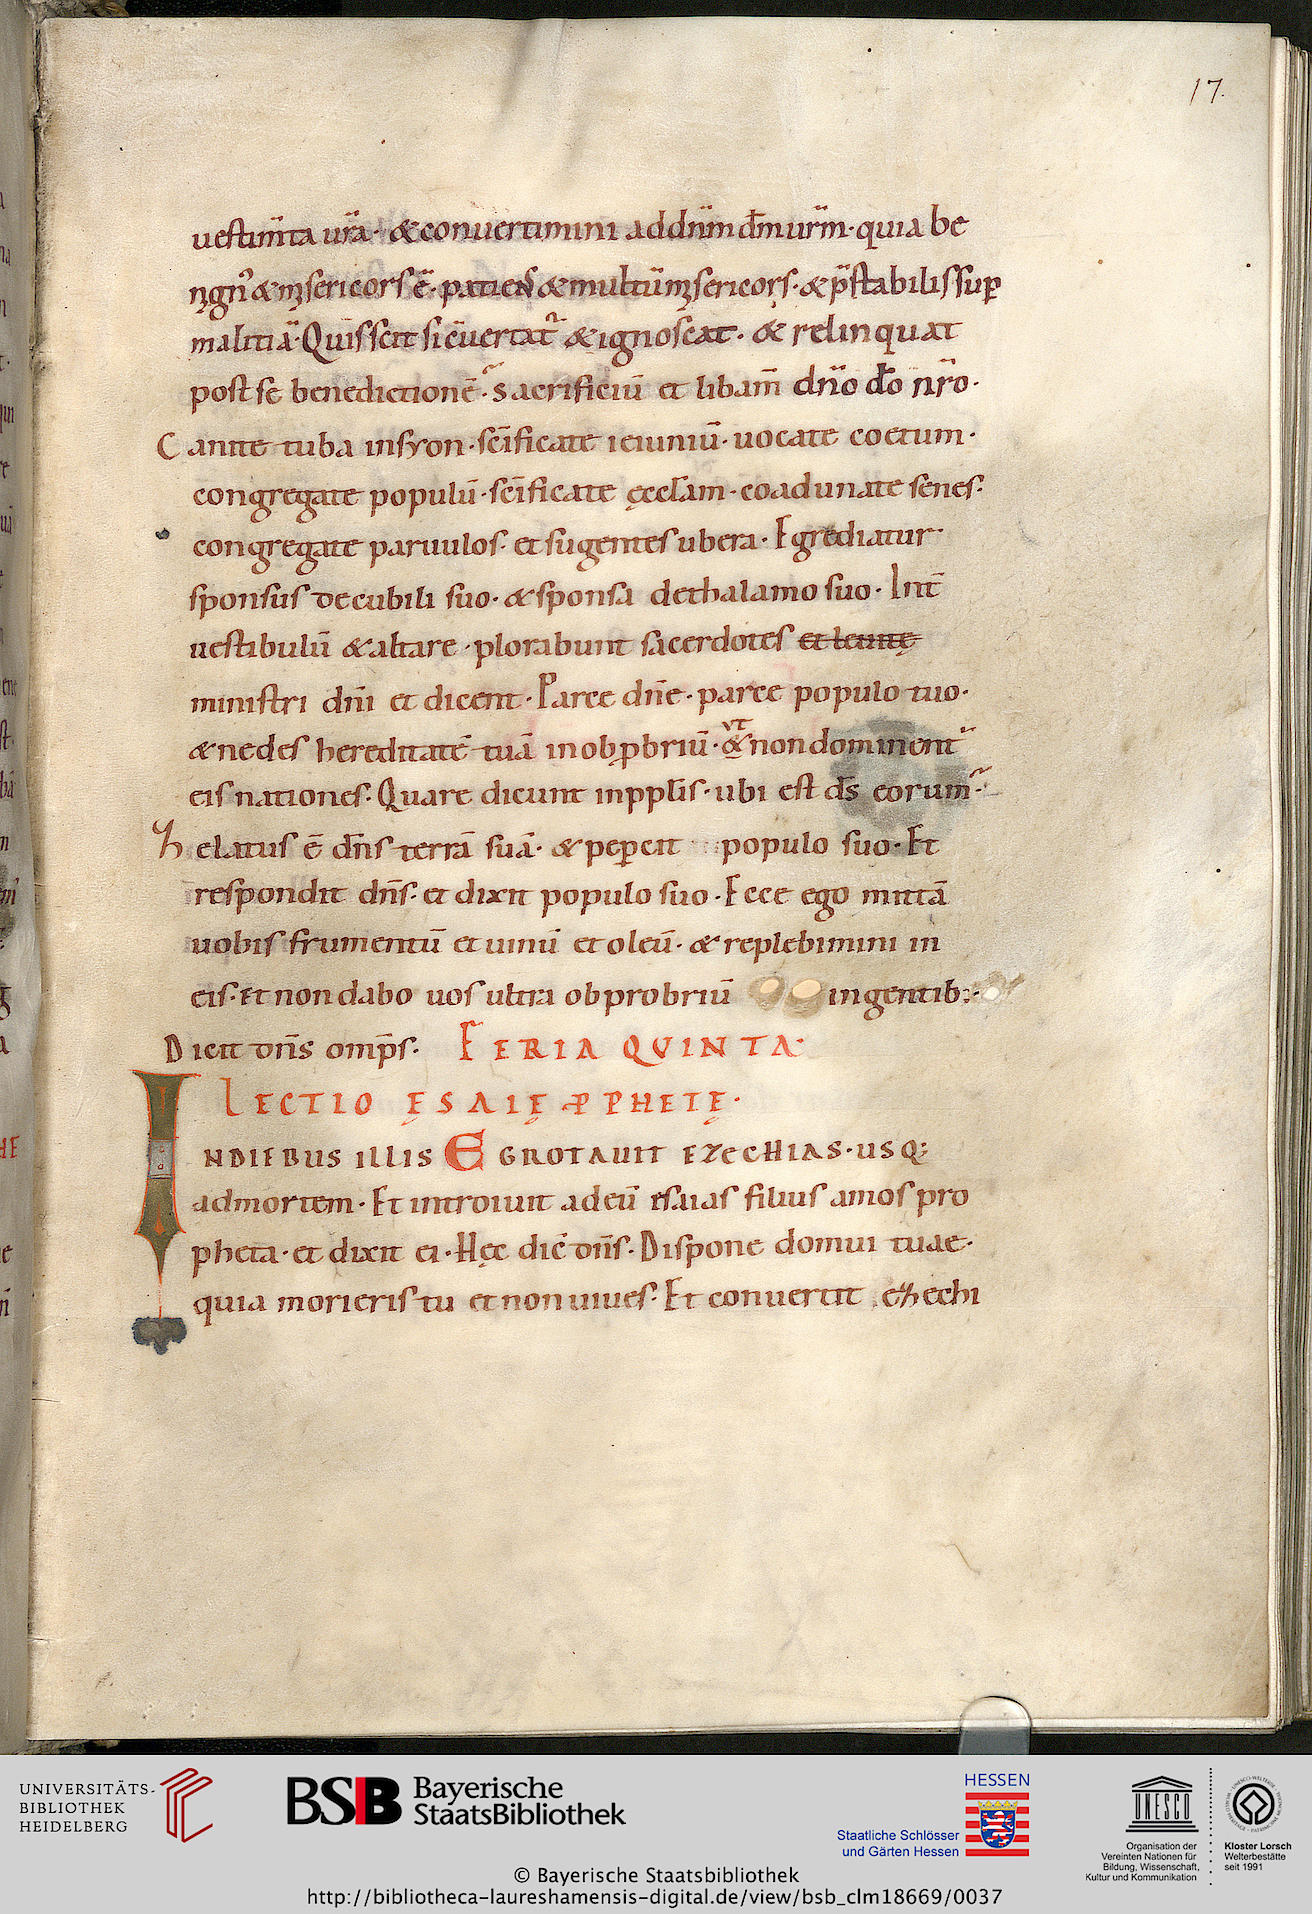 17.
uestim̅ta ur̅a· & conuertimini ad dnm̅ dm̅ urm̅· quia be
nign' & misericors e̅· patiens & multu̅ misericors· & pr̅stabilis sup̲
malitia̅· Quis scit si c̅uertat̉ & ignoscat· & relinquat
post se benedictione̅· sacrificiu̅ et libam̅ dn̅o do̅ nr̅o·
Canite tuba in syon· sc̅ificate ieiuniu̅· uocate coetum·
congregate populu̅· sc̅ificate ęccl̅am· coadunate senes·
congregate paruulos· et sugentes ubera· Egrediatur
sponsus de cubili suo· & sponsa de thalamo suo· Int̅
uestibulu̅ & altare· plorabunt sacerdotes et leuitę
ministri dn̅i et dicent· Parce dn̅e· parce populo tuo·
& ne des hereditate̅ tua̅ in obp̲briu̅· ut & non dominent̉
eis nationes· Quare dicunt in ppl̅is· ubi est ds̅ eorum·
Zelatus e̅ dn̅s terra̅ sua̅· & pep̲cit populo suo· Et
respondit dn̅s· et dixit populo suo· Ecce ego mitta̅
uobis frumentu̅ et uinu̅ et oleu̅· & replebimini in
eis· Et non dabo uos ultra obprobriu̅ in gentib;·
Dicit dn̅s omp̅s· FERIA QVINTA·
LECTIO ĘSAIĘ PPHETĘ·
INDIEBUS ILLIS EGROTAUIT EZECHIAS· USQ;
ad mortem· Et introiuit ad eu̅ esaias filius amos pro
pheta· et dixit ei· Hęc dic̅ dn̅s· Dispone domui tuae·
quia morieris tu et non uiues· Et conuertit ezechi
UNIVERSITÄTS-
BIBLIOTHEK
HEIDELBERG
BSB Bayerische
StaatsBibliothek
HESSEN
Staatliche Schlösser
und Gärten Hessen
UNESCO
Organisation der
Vereinten Nationen für
Bildung, Wissenschaft,
Kultur und Kommunikation
Kloster Lorsch
Welterbestätte
seit 1991
© Bayerische Staatsbibliothek
http://bibliotheca-laureshamensis-digital.de/view/bsb_clm18669/0037